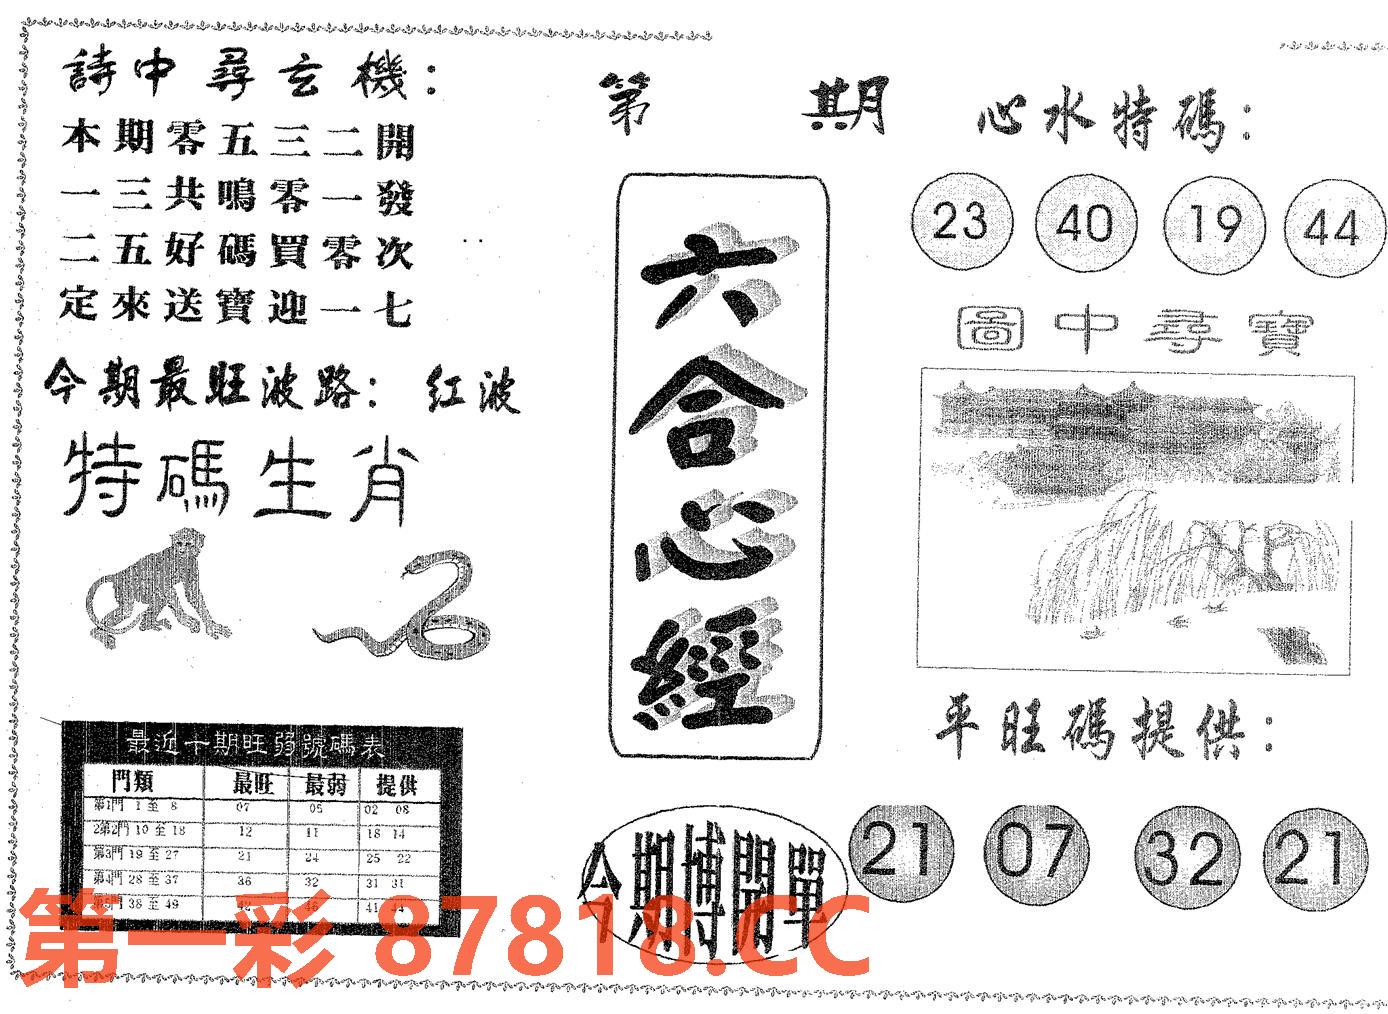 詩中尋玄機：
本期零五三二開
一三共鳴零一發
二五好碼買零次
定來送寶迎一七
今期最旺波路：紅波
特碼生肖
最近十期旺弱號碼表
門類 最旺 最弱 提供
第1門 1 至 8 07 05 02 08
2第2門 10 至 18 12 11 18 14
第3門 19 至 27 21 24 25 22
第4門 28 至 37 36 32 31 31
第5門 38 至 49 42 46 41 44
第 期
六合心經
今期博開單
心水特碼：
23 40 19 44
圖中尋寶
平旺碼提供：
21 07 32 21
第一彩 87818.CC